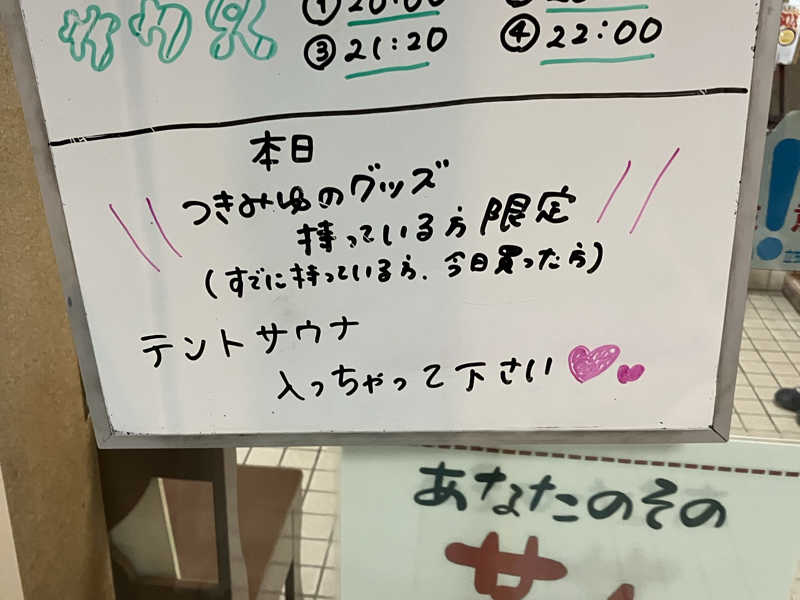 ③ 21:20 ④ 22:00
本日
つきみゆのグッズ
持っている方 限定
(すでに持っている方、今日買った方)
テントサウナ
入っちゃって下さい
あなたのその